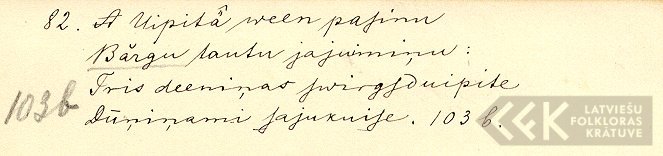 82. A Uipitâ ween pasinu
Bărgu tautu jajuminu:
Tris deeniņas swirgsduipite
103b
Dūņiņami sajukuise. 103 b.
LATVIEŠU
FOLKLORAS
KRĀTUVE